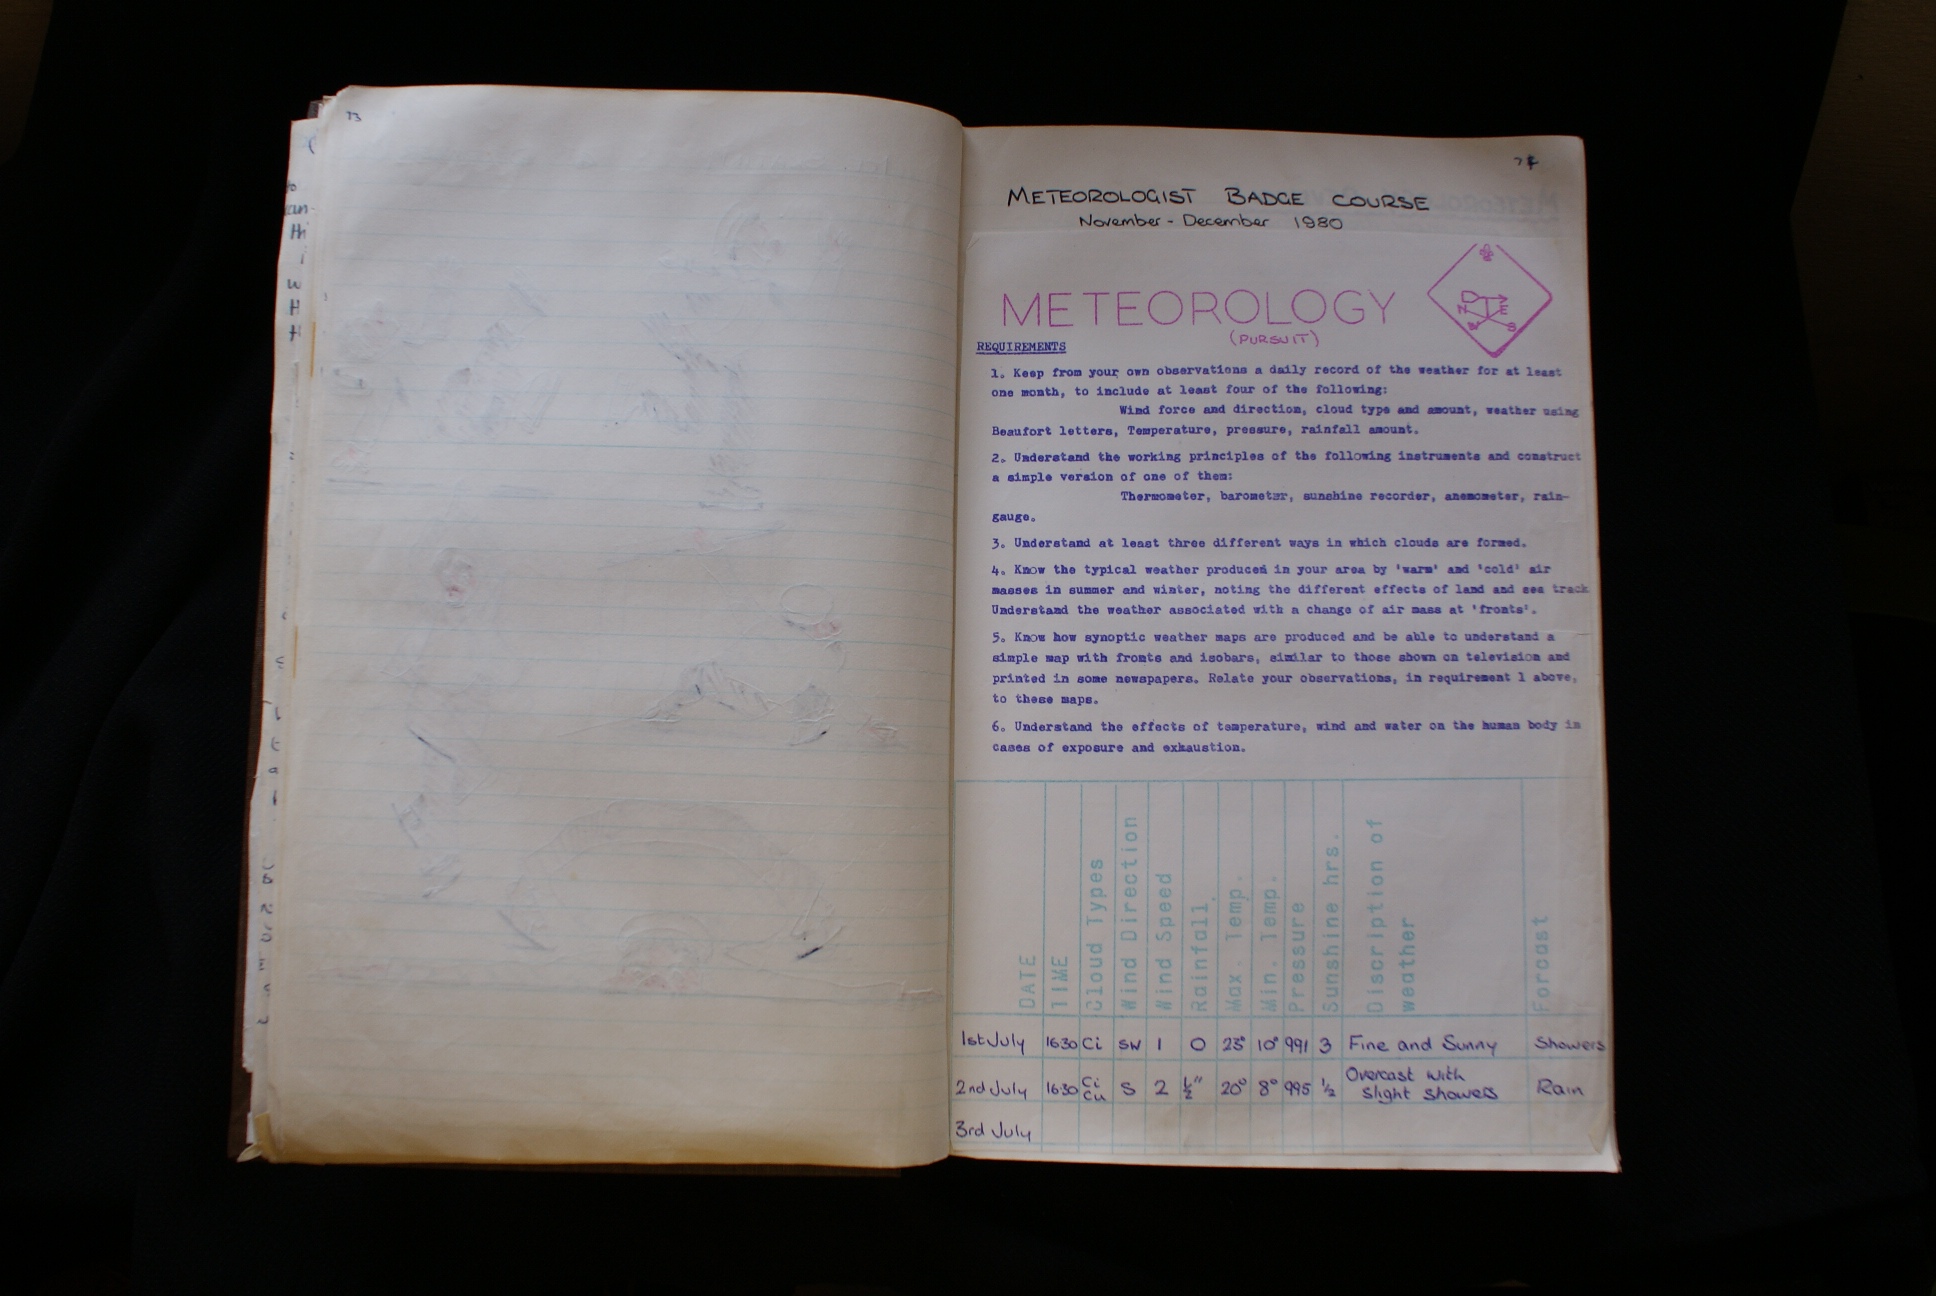 73
74
METEOROLOGIST BADGE COURSE
November - December 1980
METEOROLOGY
(PURSUIT)
N E
W S
REQUIREMENTS
1. Keep from your own observations a daily record of the weather for at least
one month, to include at least four of the following:
Wind force and direction, cloud type and amount, weather using
Beaufort letters, Temperature, pressure, rainfall amount.
2. Understand the working principles of the following instruments and construct
a simple version of one of them:
Thermometer, barometer, sunshine recorder, anemometer, rain-
gauge.
3. Understand at least three different ways in which clouds are formed.
4. Know the typical weather produced in your area by 'warm' and 'cold' air
masses in summer and winter, noting the different effects of land and sea track
Understand the weather associated with a change of air mass at 'fronts'.
5. Know how synoptic weather maps are produced and be able to understand a
simple map with fronts and isobars, similar to those shown on television and
printed in some newspapers. Relate your observations, in requirement 1 above,
to these maps.
6. Understand the effects of temperature, wind and water on the human body in
cases of exposure and exhaustion.
DATE
TIME
Cloud Types
Wind Direction
Wind Speed
Rainfall.
Max. Temp.
Min. Temp.
Pressure
Sunshine hrs.
Discription of
weather
Forcast
1st July 1630 Ci SW 1 0 23° 10° 991 3 Fine and Sunny Showers
2nd July 1630 Ci Cu S 2 ½" 20° 8° 995 ½ Overcast with
slight showers Rain
3rd July